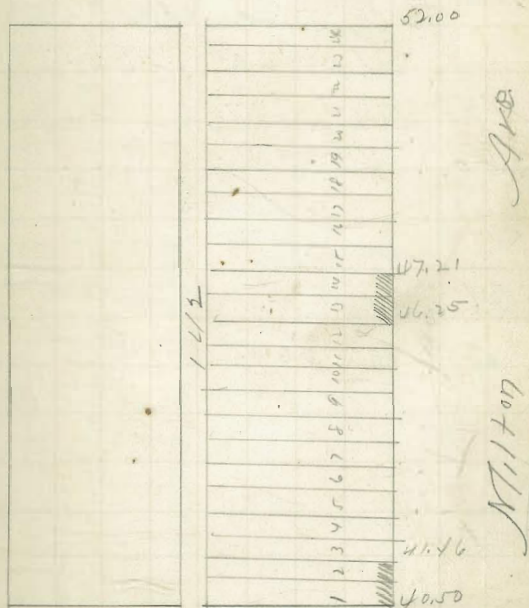 52.00
24
23
22
21
20
19
18
17
16
15
14
13
12
11
10
9
8
7
6
5
4
3
2
1
142
47.21
46.25
41.46
40.50
Milton Ave